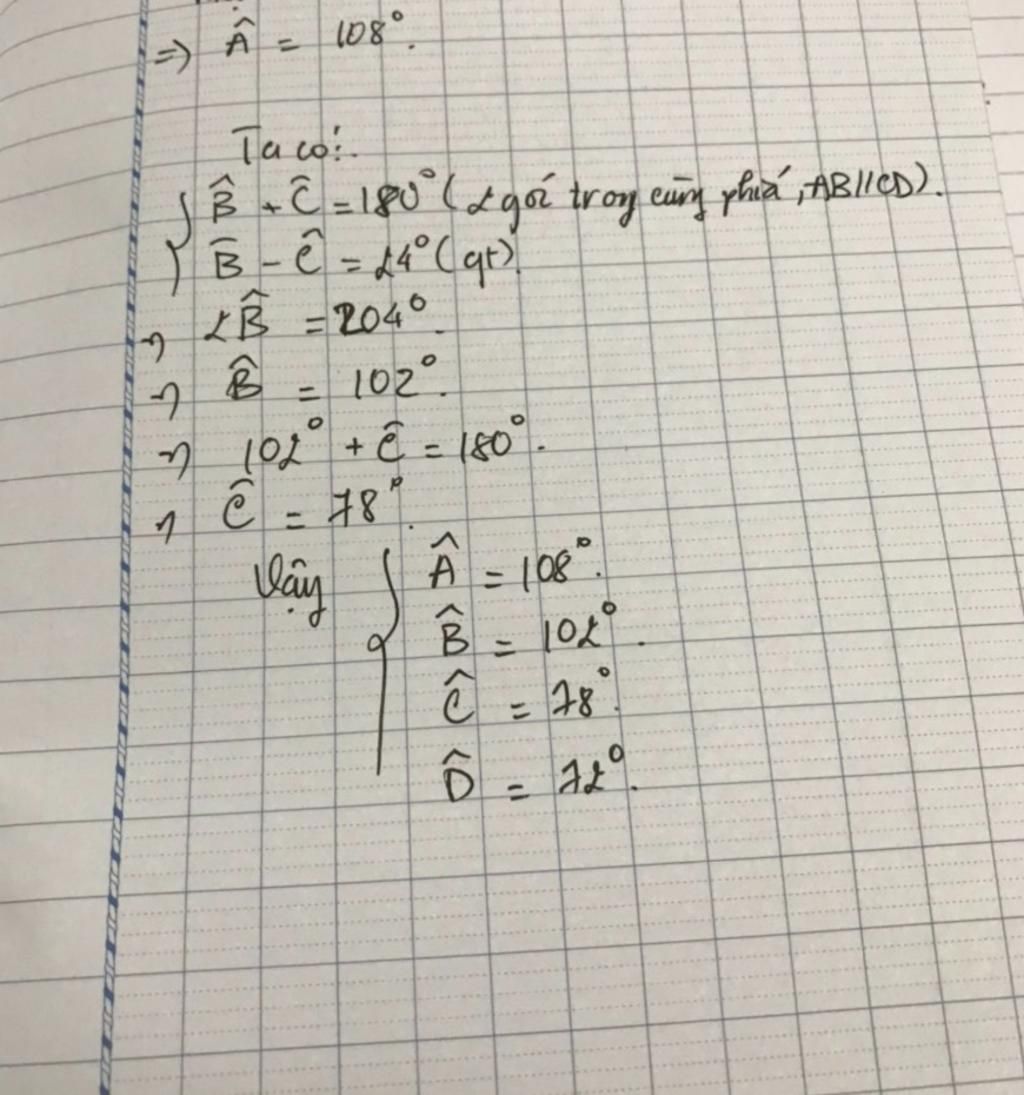 => Â = 108°.
Ta có:
{ B̂ + Ĉ = 180° (2 góc trong cùng phía, AB//CD).
B̂ - Ĉ = 24° (gt)
=> 2B̂ = 204°.
=> B̂ = 102°.
=> 102° + Ĉ = 180°.
=> Ĉ = 78°.
Vậy { Â = 108°.
B̂ = 102°.
Ĉ = 78°.
D̂ = 72°.